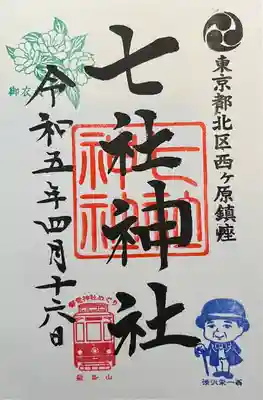 東京都北区西ヶ原鎮座
七社神社
七社神社
令和五年四月十六日
御衣
御電神社めぐり
飛鳥山
渋沢栄一翁